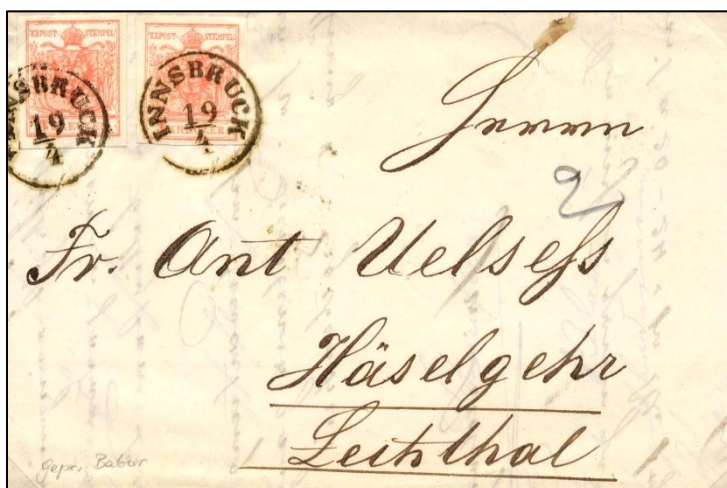 KKPOST- STEMPEL
KKPOST- STEMPEL
INNSBRUCK
19
4
INNSBRUCK
19
4
Herrn
2
Fr. Ant
Häselgehr
Lechthal
gepr. Babor